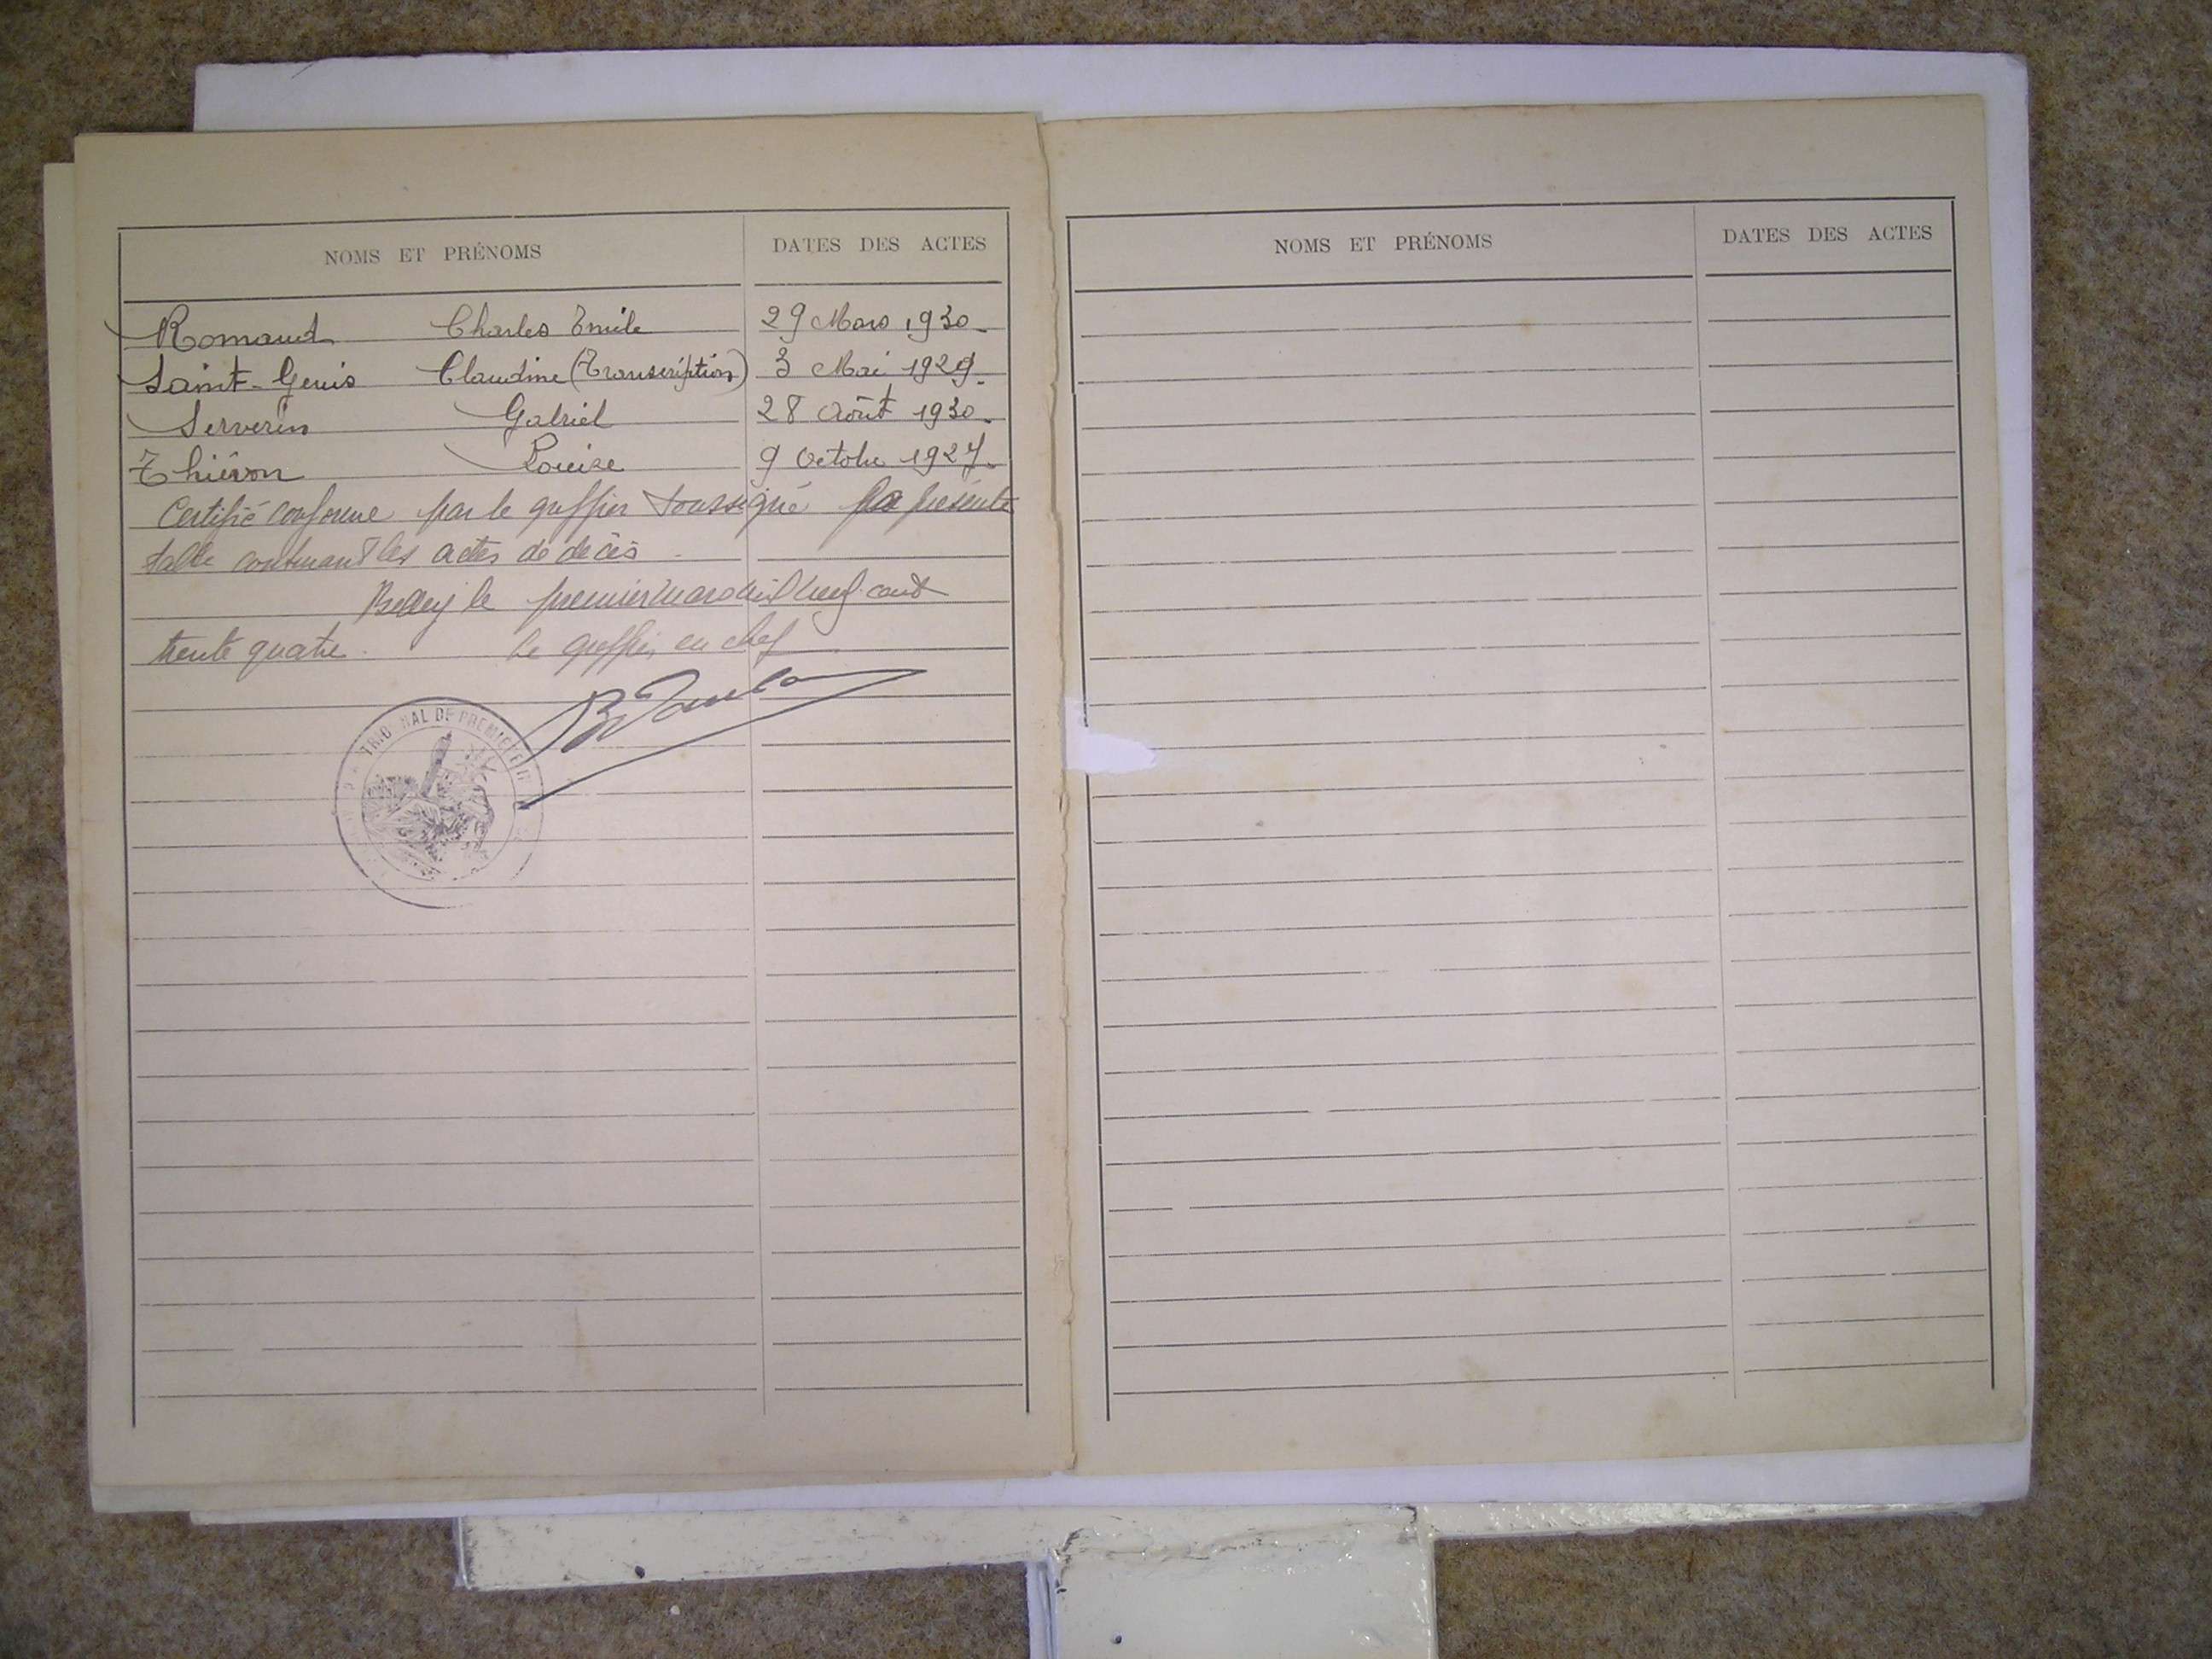 NOMS ET PRÉNOMS DATES DES ACTES
Romand Charles Emile 29 Mars 1930
Saint-Genis Claudine (Transcription) 3 Mai 1929
Serverin Gabriel 28 Août 1930
Thiévon Louise 9 Octobre 1927
Certifié conforme par le greffier soussigné la présente
table contenant les actes de décès
Belley le premier mars mil neuf cent
trente quatre. Le greffier en chef
TRIBUNAL DE PREMIERE
NOMS ET PRÉNOMS DATES DES ACTES